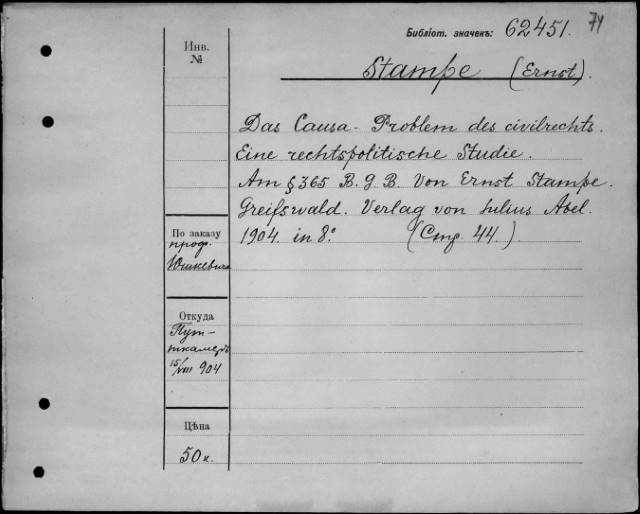 Библіот. значекъ: 62451. 74
Инв.
№
Stampe (Ernst).
Das Causa-Problem des civilrechts.
Eine rechtspolitische Studie.
Am § 365 B. G. B. Von Ernst Stampe.
Greifswald. Verlag von Julius Abel.
1904. in 8° (Стр. 44.)
По заказу
проф.
Юшкевича
Откуда
Пут-
ткамеръ
15/VIII 904
Цѣна
50 к.